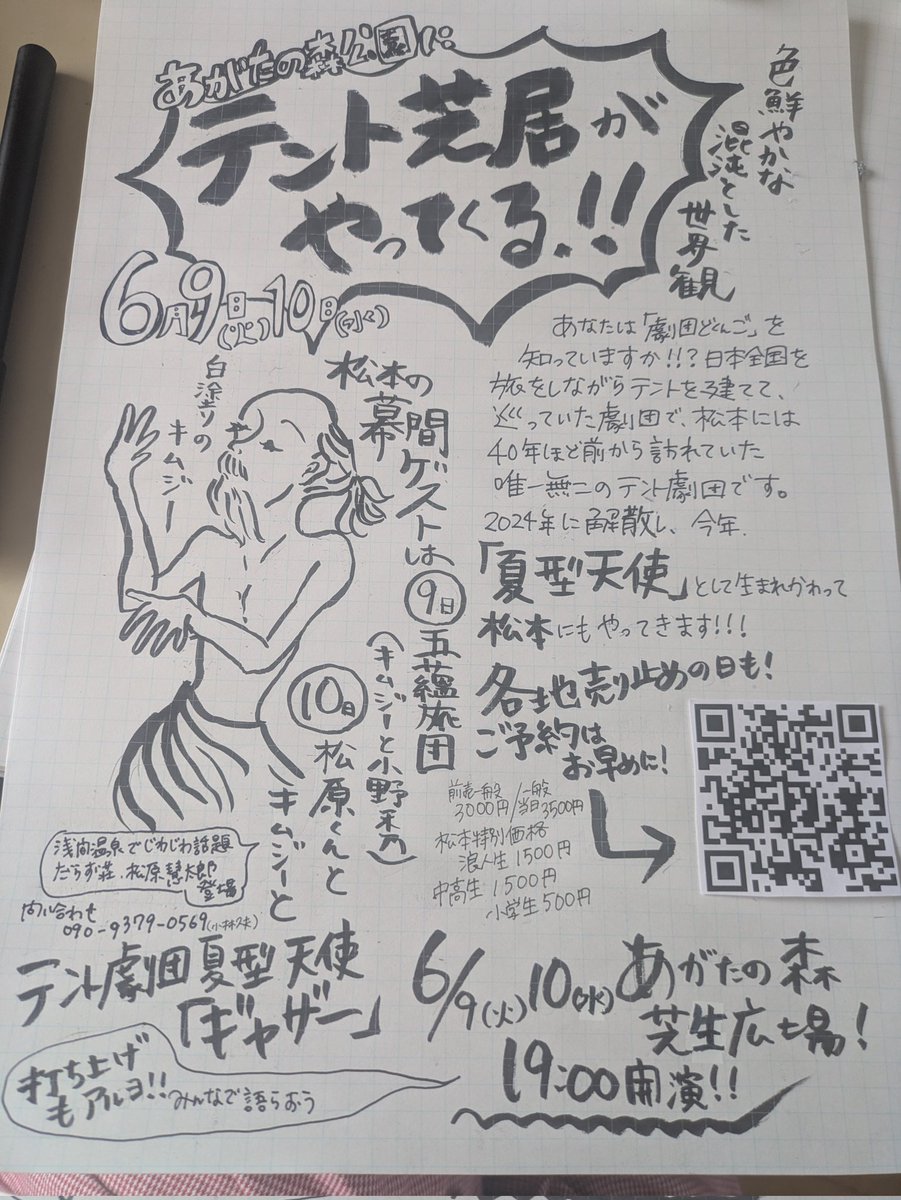 あがたの森公園に
テント芝居が
やってくる!!
色鮮やかな
混沌とした
世界観
6月9日(火)10日(水)
あなたは「劇団どくんご」を
知っていますか!!?日本全国を
旅をしながらテントを建てて、
巡っていた劇団で、松本には
40年ほど前から訪れていた
唯一無二のテント劇団です。
2024年に解散し、今年、
「夏型天使」として生まれかわって
松本にもやってきます!!!
各地売り止めの日も!
ご予約は
お早めに!
松本の
幕間ゲストは
9日 五蘊旅団
(キムジーと小野禾乃)
10日 松原くんと
キムジーと
白塗りの
キムジー
前売一般 3000円/一般当日3500円
松本特別価格
浪人生1500円
中高生 1500円
小学生500円
浅間温泉でじわじわ話題
だらず荘、松原慧太郎
登場
問い合わせ
090-9379-0569
テント劇団夏型天使
「ギャザー」
6/9(火)10(水)あがたの森
芝生広場!
19:00開演!!
打ち上げ
もアルヨ!!みんなで語らおう